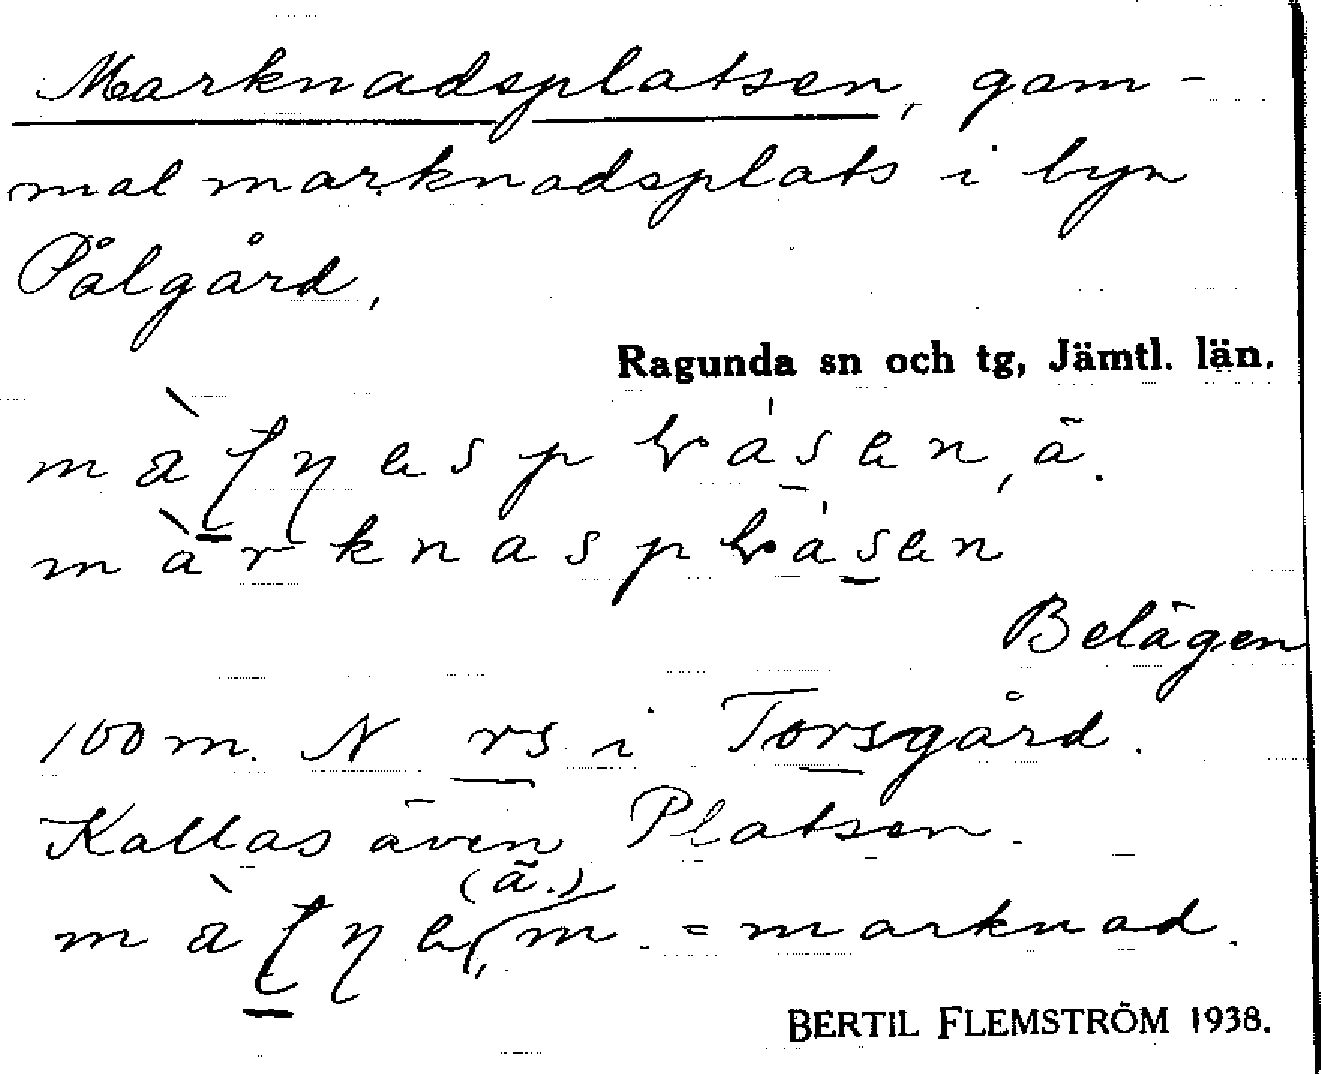 Marknadsplatsen, gam-
mal marknadsplats i byn
Pålgård,
Ragunda sn och tg, Jämtl. län.
Belägen
100 m. N rs i Torsgård.
Kallas även Platsen.
(ä.)
m. = marknad.
BERTIL FLEMSTRÖM 1938.